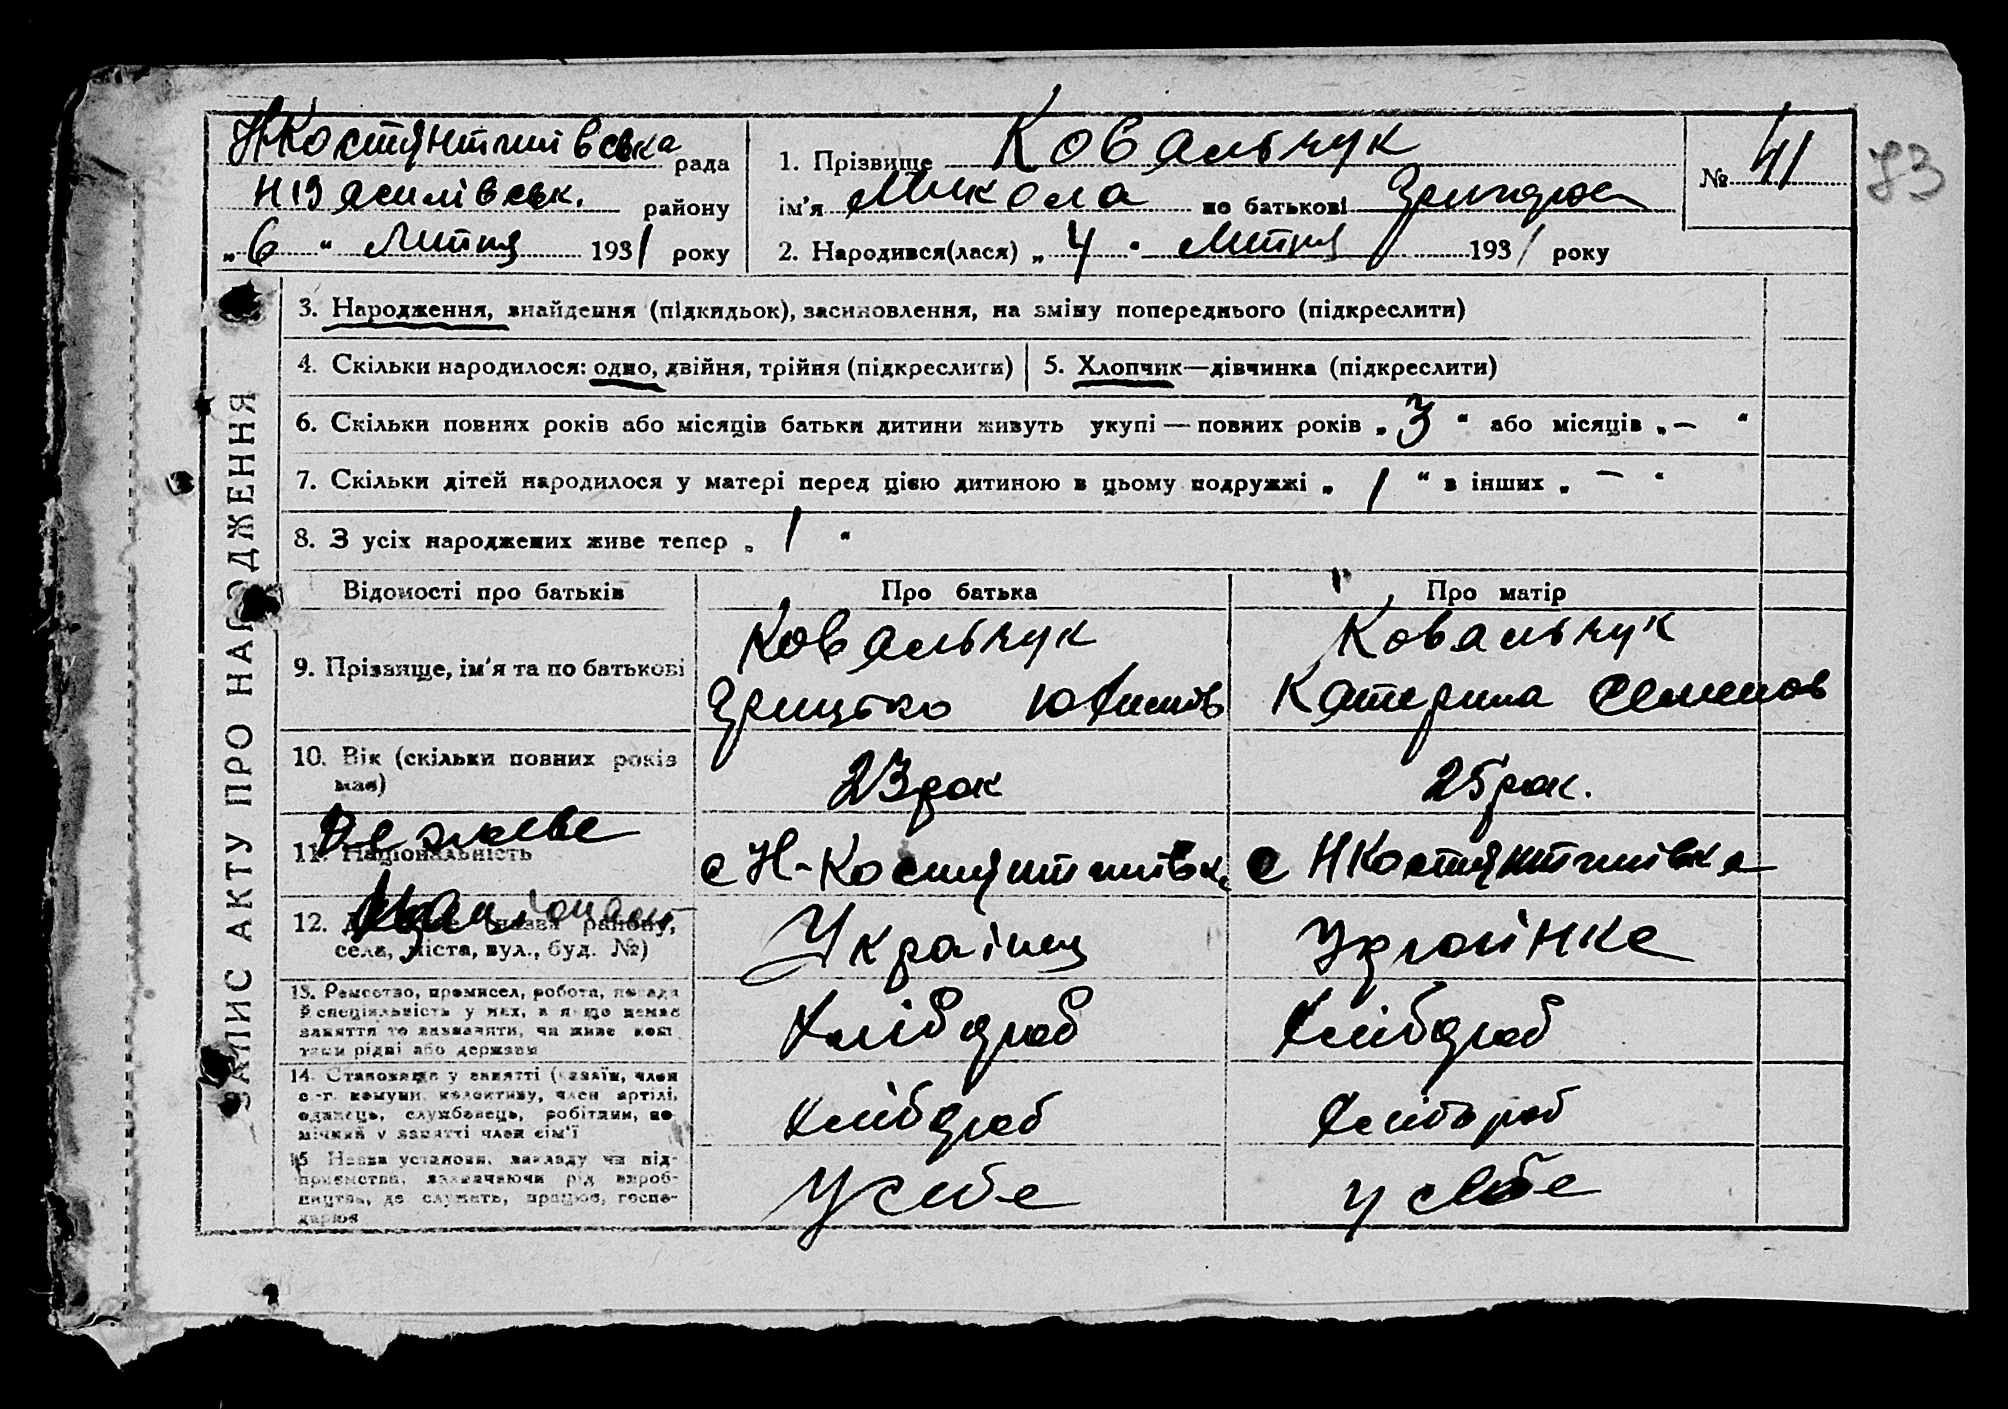 Н Костянтинівська рада
Н Василівськ. району
„ 6 “ Липня 1931 року
1. Прізвище Ковальчук
ім'я Микола по батькові
2. Народився(лася) „ 4 “ Липня 1931 року
№ 41
83
ЗАПИС АКТУ ПРО НАРОДЖЕННЯ
3. Народження, знайдення (підкидьок), засиновлення, на зміну попереднього (підкреслити)
4. Скільки народилося: одно, двійня, трійня (підкреслити)
5. Хлопчик—дівчинка (підкреслити)
6. Скільки повних років або місяців батьки дитини живуть укупі — повних років „ 3 “ або місяців „ — “
7. Скільки дітей народилося у матері перед цією дитиною в цьому подружжі „ 1 “ в інших „ — “
8. З усіх народжених живе тепер „ 1 “
Відомості про батьків Про батька Про матір
9. Прізвище, ім'я та по батькові
Ковальчук
Грицько Юхимів
Ковальчук
Катерина Семенов
10. Вік (скільки повних років має)
23 рок
25 рок.
Де живе
11. Національність
с Н-Костянтинівка
с Н Костянтинівка
Націонал
12. назва району,
села, міста, вул., буд. №)
Українец
Українка
13. Ремество, промисел, робота, посада
й спеціяльність у них, а якщо немає
заняття то зазначити, чи живе кош
тами рідні або держави
Хлібороб
Хлібороб
14. Становище у занятті (хазяїн, член
с.-г. комуни, колективу, член артілі,
одинець, службовець, робітник, по
мічний у занятті член сім'ї
Хлібороб
Хлібороб
15. Назва установи, закладу чи під-
приємства, зазначаючи рід вироб-
ництва, де служить, працює, госпо-
дарює
У себе
у себе